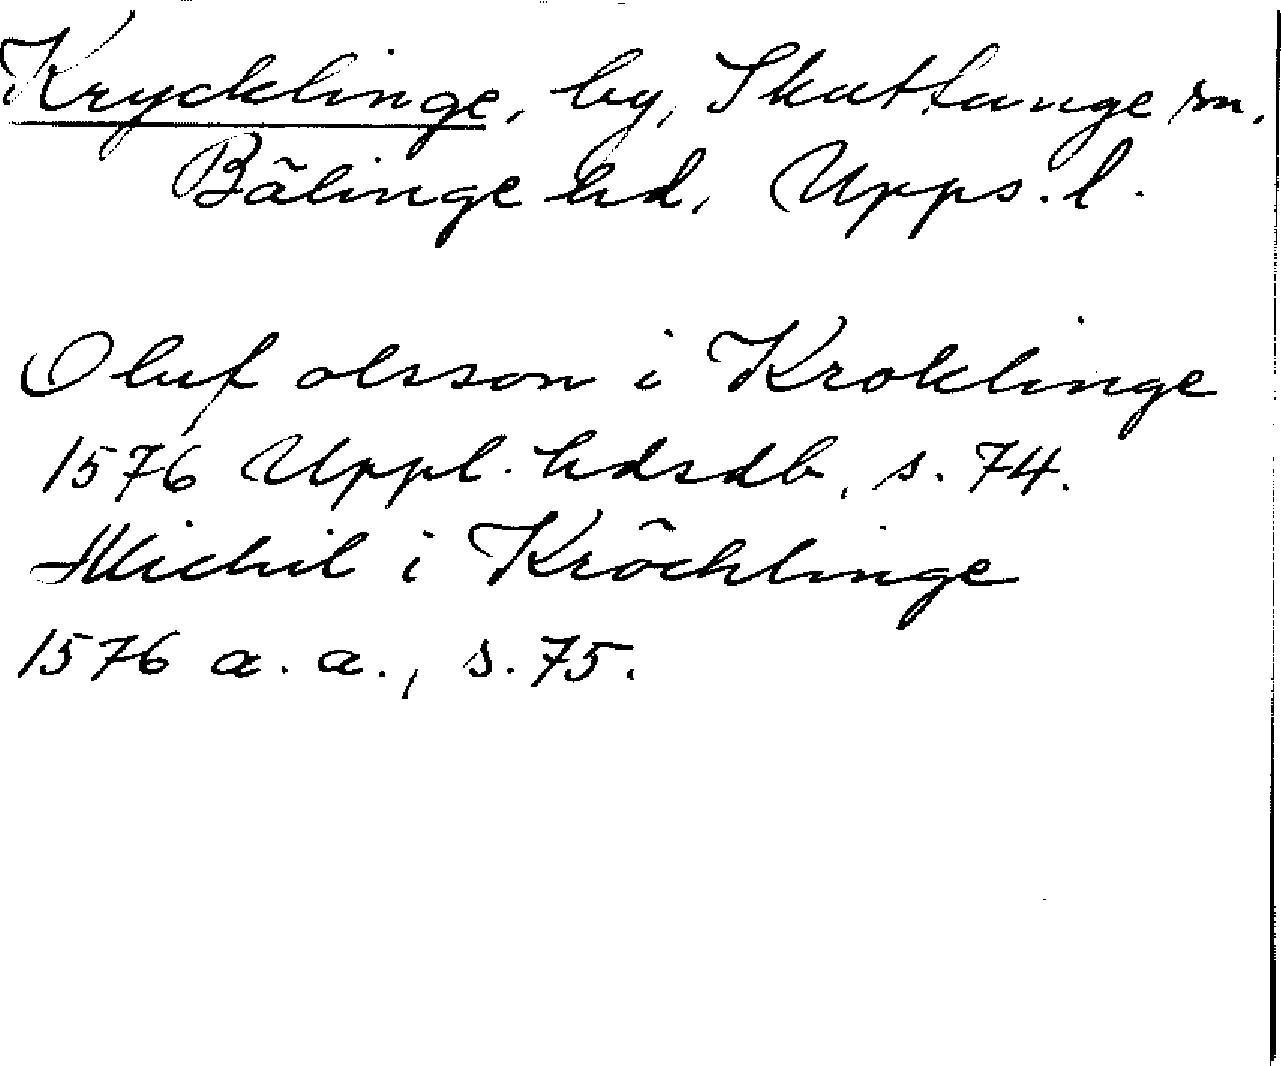 Krycklinge, by, Skuttunge sn,
Bälinge hd, Upps. l.
Oluf olsson i Kroklinge
1576 Uppl. hdsdb, s. 74.
Michil i Kröchlinge
1576 a. a., s. 75.